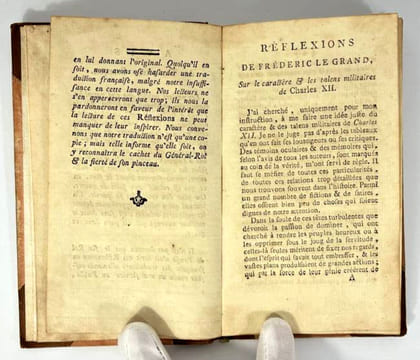 en lui donnant l'original. Quoiqu'il en
soit, nous avons osé hasarder une tra-
duction française, malgré notre insuffi-
sance en cette langue. Nos lecteurs ne
s'en appercevrons que trop; ils nous la
pardonneront en faveur de l'intérêt que
la lecture de ces Réflexions ne peut
manquer de leur inspirer. Nous conve-
nons que notre traduction n'est qu'une co-
pie; mais telle informe qu'elle soit, on
y reconnaitra le cachet du Général-Roi
& la fierté de son pinceau.
RÉFLEXIONS
DE FRÉDERIC LE GRAND,
Sur le caractère & les talens militaires
de Charles XII.
J'ai cherché, uniquement pour mon
instruction, à me faire une idée juste du
caractère & des talens militaires de Charles
XII. Je ne le juge pas d'après les tableaux
qu'en ont fait ses louangeurs ou ses critiques.
Des témoins oculaires & des mémoires qui,
selon l'avis de tous les auteurs, sont marqués
au coin de la vérité, m'ont servi de règle. Il
faut se méfier de toutes ces particularités,
de toutes ces relations trop détaillées que
nous trouvons souvent dans l'histoire. Parmi
un grand nombre de fictions & de satires,
elles offrent bien peu de choses qui soient
dignes de notre attention.
Dans la foule de ces têtes turbulentes que
dévoroit la passion de dominer, qui ont
cherché à rendre les peuples heureux ou à
les opprimer sous le joug de la servitude,
celles-là seules méritent de fixer nos regards,
dont l'esprit qui savait tout embrasser, & les
vastes plans produisaient de grandes actions;
qui par la force de leur génie créèrent de
A